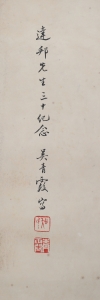 達邦先生三十紀念 吳青霞寫